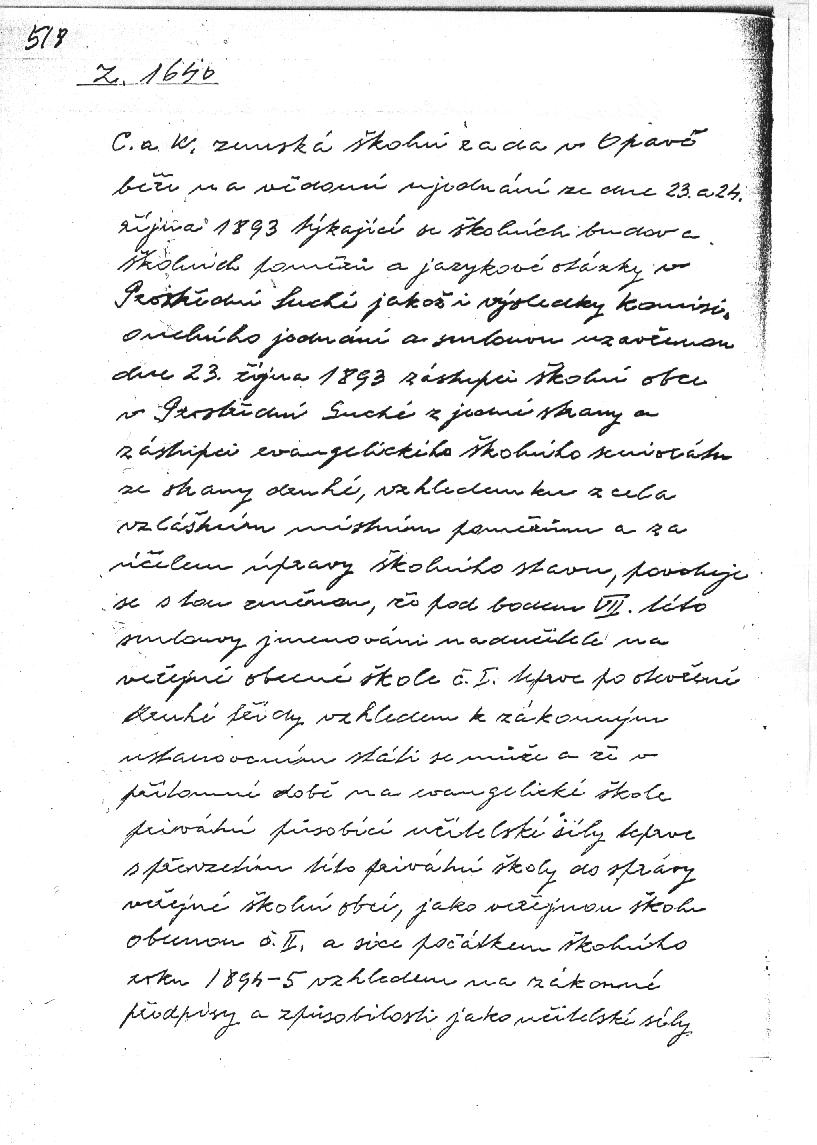 518
Z. 1640
C. a K. zemská školní rada v Opavě
béře na vědomí ujednání ze dne 23. a 24.
října 1893 týkající se školních budov a
školních poměrů a jazykové otázky v
Prostřední Suché jakož i výsledky komisi-
onelního jednání a smlouvu uzavřenou
dne 23. října 1893 zástupci školní obce
v Prostřední Suché z jedné strany a
zástupci evangelického školního seniorátu
ze strany druhé, vzhledem ku zcela
vzláštním místním poměrům a za
účelem úpravy školního stavu, povoluje
se s tou změnou, že pod bodem VII. této
smlouvy jmenování nadučitele na
veřejné obecné škole č. I. teprve po otevření
druhé třídy vzhledem k zákonným
ustanovením státi se může a že v
přítomné době na evangelické škole
privátní působící učitelské síly teprve
s převzetím této privátní školy do správy
veřejné školní obcí, jako veřejnou školu
obecnou č. II. a sice počátkem školního
roku 1894-5 vzhledem na zákonné
předpisy a způsobilosti jako učitelské síly